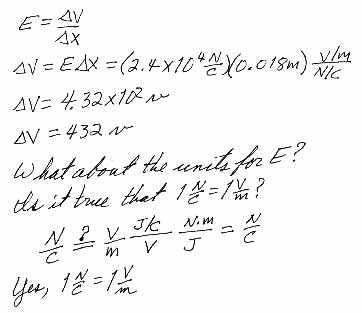 E = ΔV/ΔX
ΔV = EΔX = (2.4×10⁴ N/C)(0.018m) V/m / N/C
ΔV = 4.32×10² v
ΔV = 432 v
What about the units for E?
Is it true that 1 N/C = 1 V/m?
N/C ?= V/m J/C / V N·m/J = N/C
Yes, 1 N/C = 1 V/m